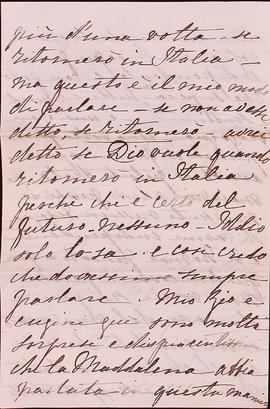 più d'una volta - se
ritornerò in Italia -
ma questo è il mio modo
di parlare - se non avessi
detto, se ritornerò - avrei
detto se Dio vuole quando
ritornerò in Italia
perché chi è certo del
futuro - nessuno - Iddio
solo lo sa. e così credo
che dovessimo sempre
parlare. Mio Zio e
cugine qui sono molto
sorprese e dispiacentissimi
che la Maddalena abbia
parlata in questa maniera